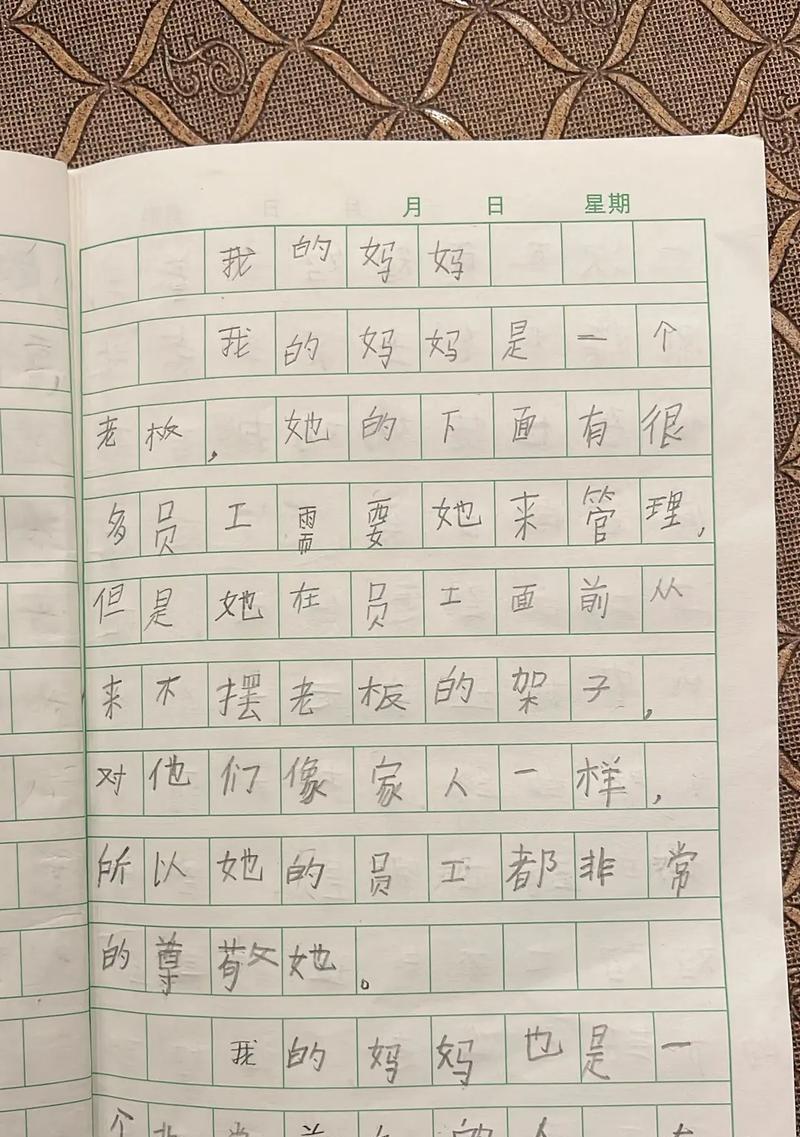 月 日 星期
我的妈妈
我的妈妈是一个
老板，她的下面有很
多员工需要她来管理，
但是她在员工面前从
来不摆老板的架子，
对他们像家人一样，
所以她的员工都非常
的尊敬她。
我的妈妈也是一
个非常